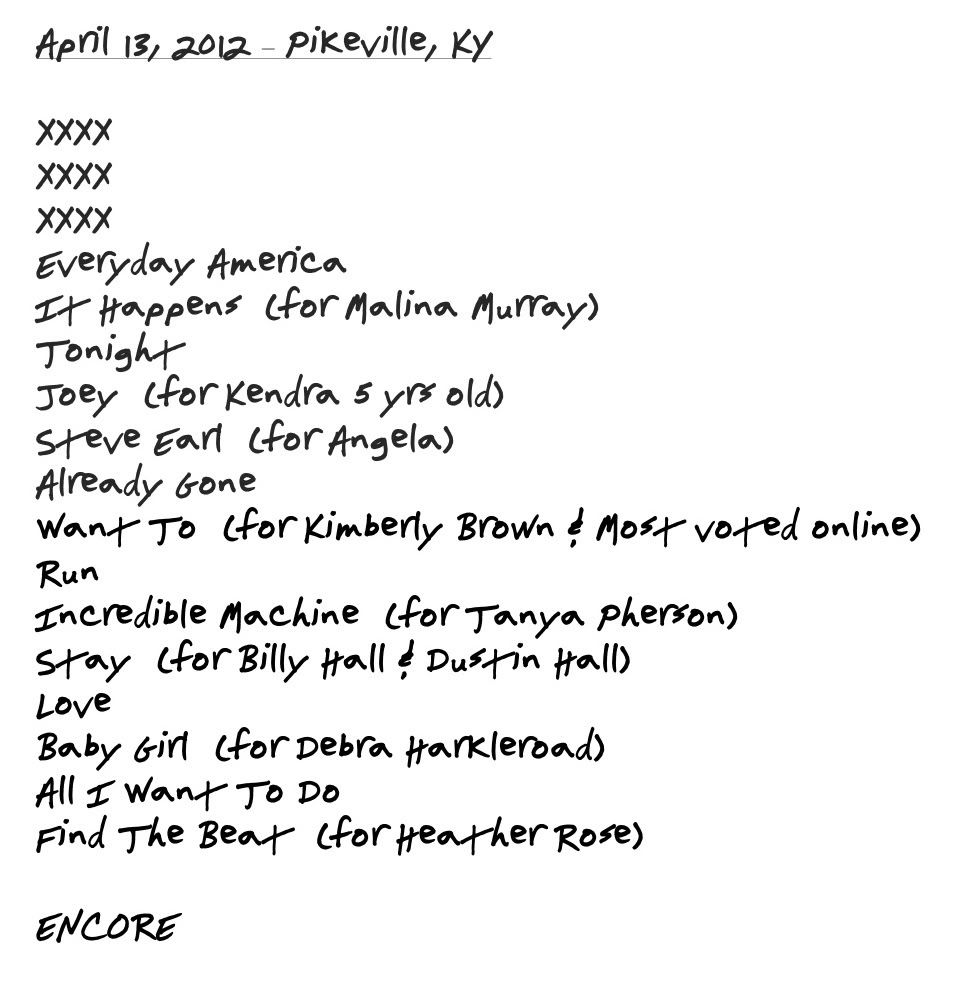 April 13, 2012 – Pikeville, KY
XXXX
XXXX
XXXX
Everyday America
It Happens (for Malina Murray)
Tonight
Joey (for Kendra 5 yrs old)
Steve Earl (for Angela)
Already Gone
Want To (for Kimberly Brown & Most voted online)
Run
Incredible Machine (for Tanya Pherson)
Stay (for Billy Hall & Dustin Hall)
Love
Baby Girl (for Debra Harkleroad)
All I Want To Do
Find The Beat (for Heather Rose)
ENCORE